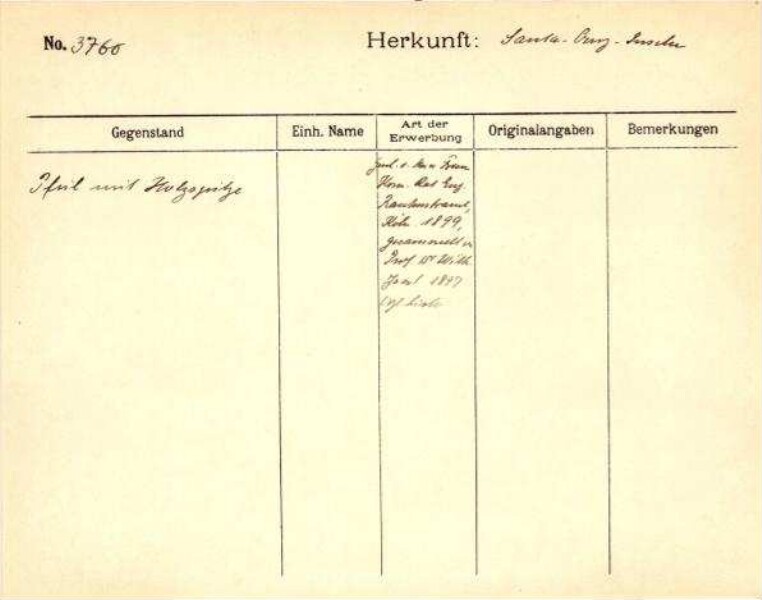 No. 3760
Herkunft: Santa-Cruz-Inseln
Gegenstand
Einh. Name
Art der Erwerbung
Originalangaben
Bemerkungen
Pfeil mit Holzspitze
Frau
Kom. Rat Eug.
Rautenstrauch,
Köln 1899,
gesammelt v.
Prof Dr Wilh
Joest 1897